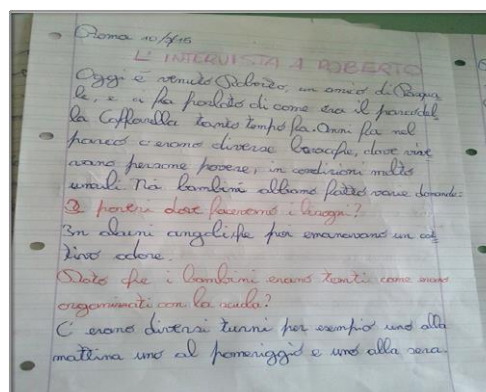 Roma 10/3/15
L'INTERVISTA A ROBERTO
Oggi è venuto Roberto, un amico di Pasqua
le, e ci ha parlato di come era il parco del
la Caffarella tanto tempo fa. Anni fa nel
parco c'erano diverse baracche, dove vive
vano persone povere, in condizioni molto
umili. Noi bambini abbiamo fatto varie domande:
I poveri dove facevano i bisogni?
In alcuni angoli che per emanavano un cat
tivo odore.
Dato che i bambini erano tanti come erano
organizzati con la scuola?
C'erano diversi turni per esempio uno alla
mattina uno al pomeriggio e uno alla sera.